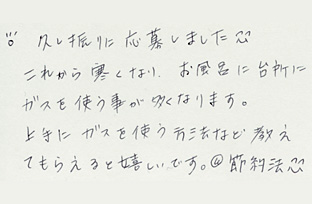 久し振りに応募しました〰
これから寒くなり、お風呂に台所に
ガスを使う事が多くなります。
上手にガスを使う方法など教え
てもらえると嬉しいです。@節約法〰